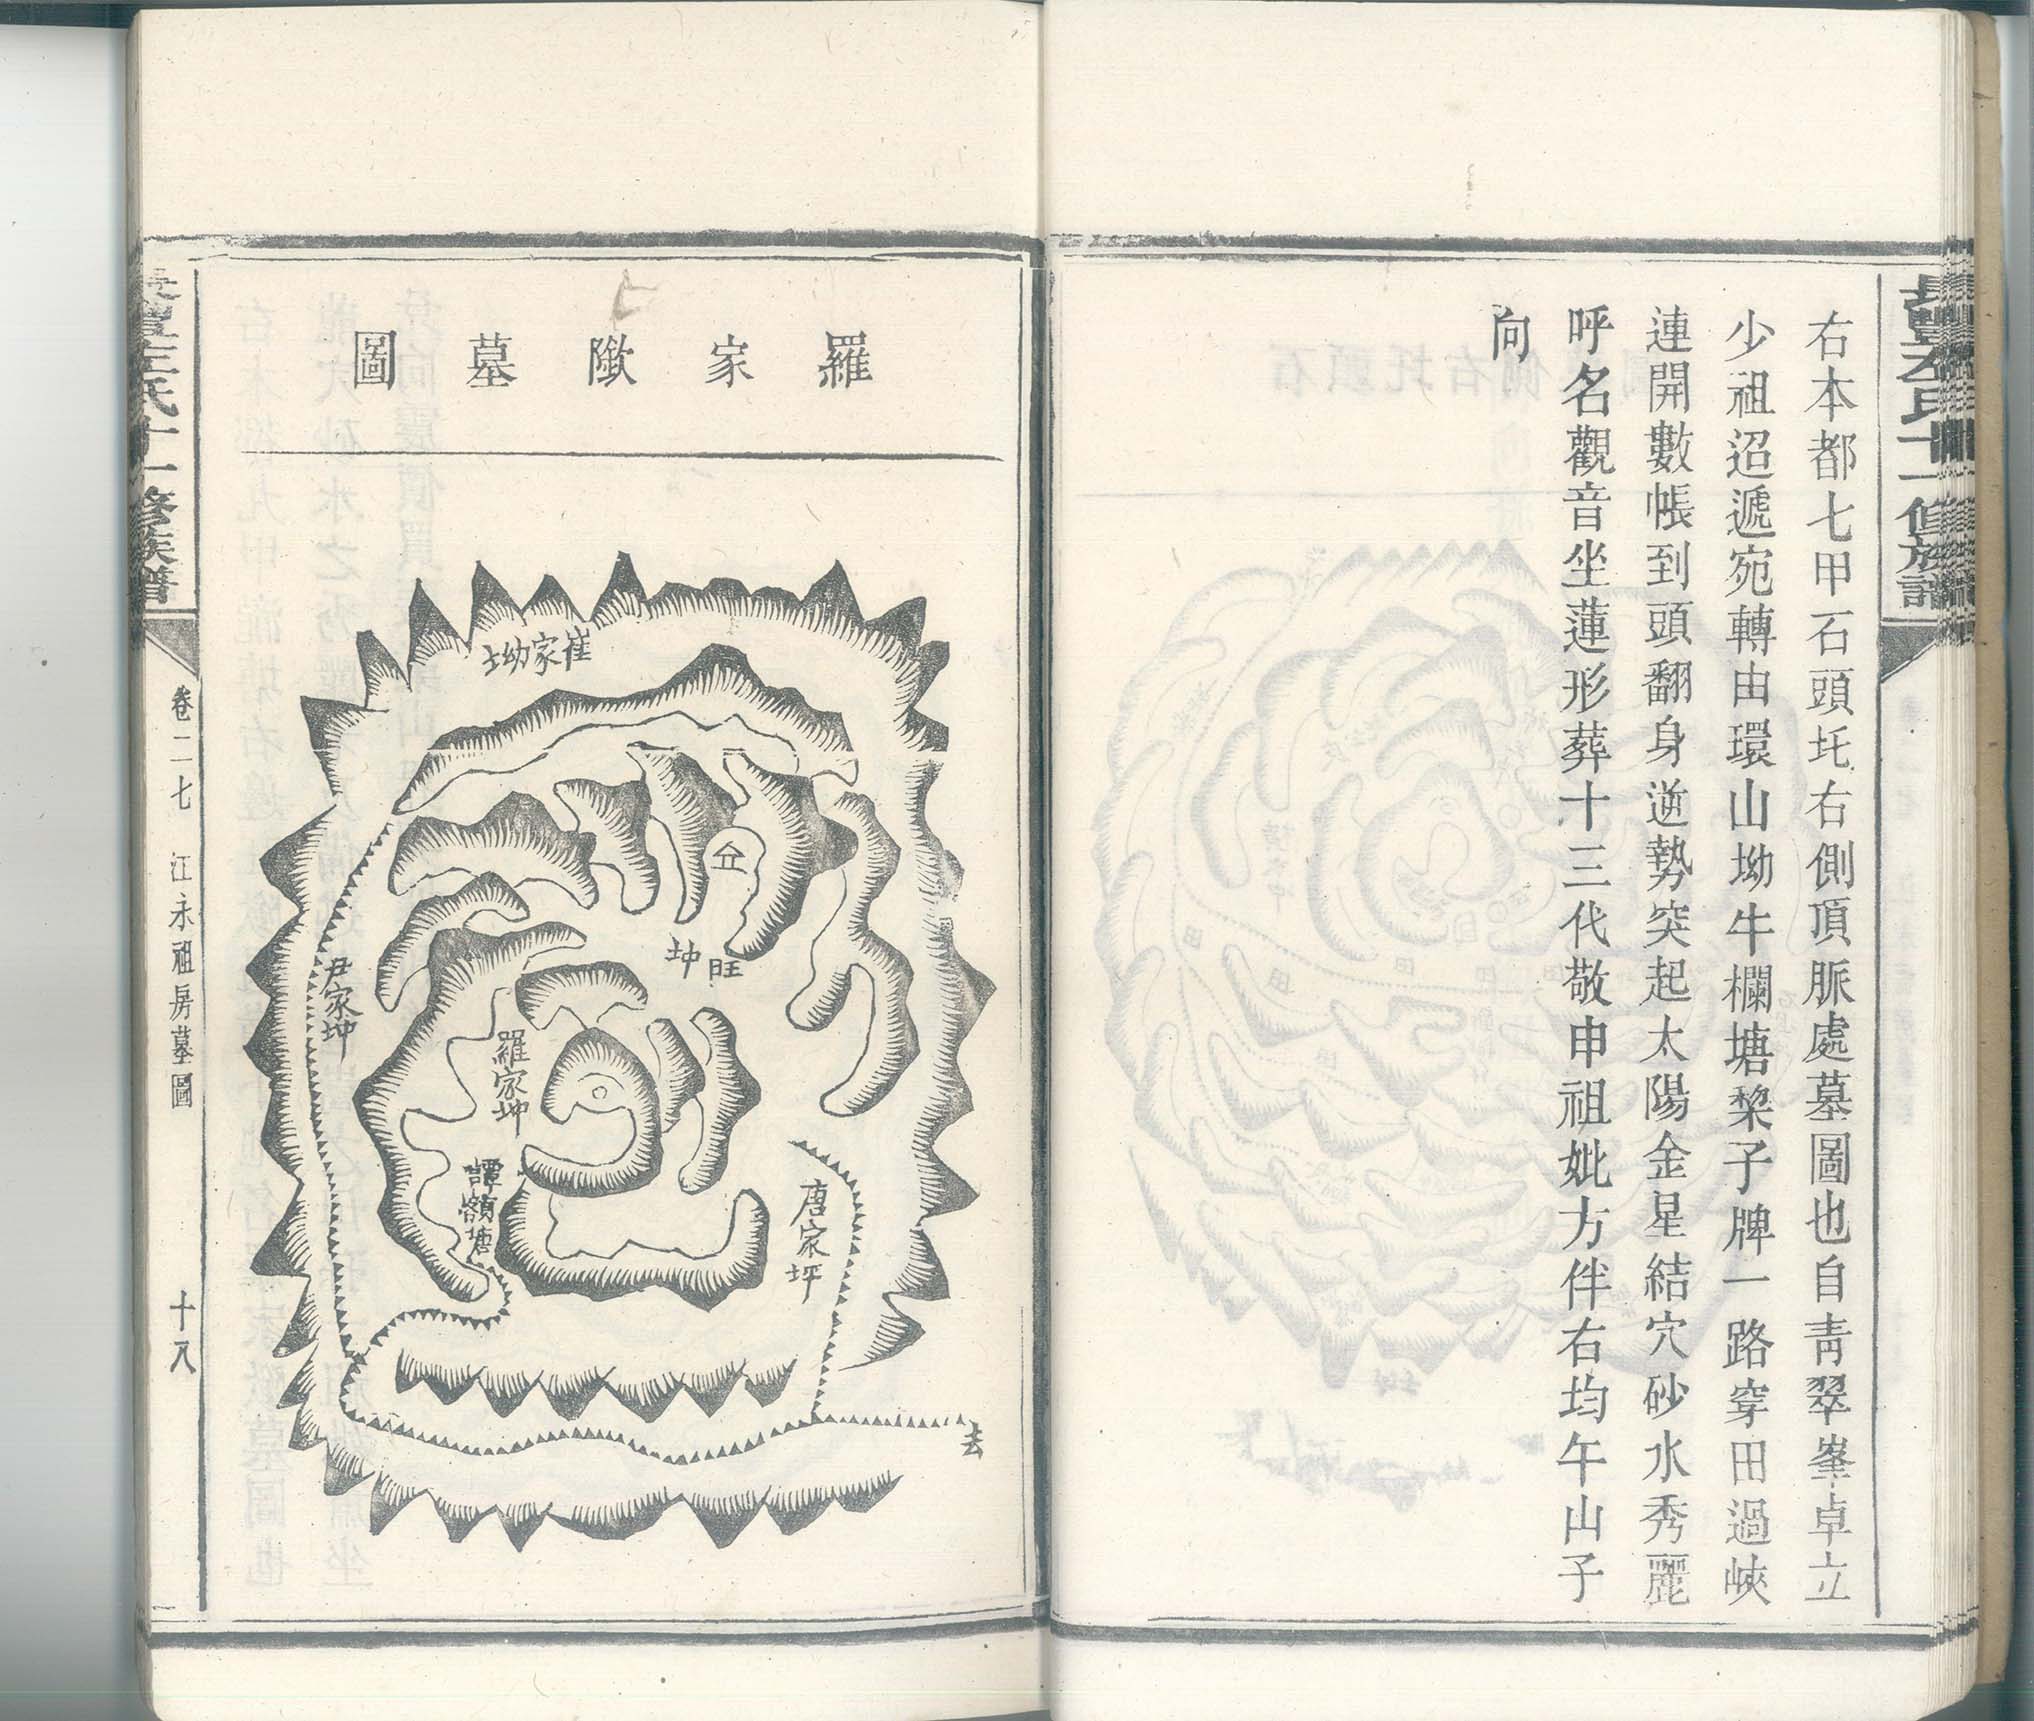 右本都七甲石頭圫右側頂脈處墓圖也自靑翠峯卓立
少祖迢遞宛轉由環山坳牛欄塘棃子牌一路穿田過峽
連開數帳到頭翻身逆勢突起太陽金星結穴砂水秀麗
呼名觀音坐蓮形葬十三代敬申祖妣方伴右均午山子
向
羅家墩墓圖
崔家坳
尹家坤
旺坤
羅家坤
譚額塘
唐家坪
去
氏十一修族譜
卷二七
江永祖房墓圖
十八